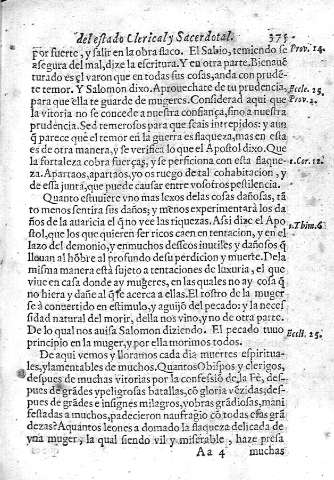 del estado Clerical, y Sacerdotal. 375
por fuerte, y salir en la obra flaco. El Sabio, temiendo se
assegura del mal, dize la escritura. Y en otra parte. Bienauē
turado es ęl varon que en todas sus cosas, anda con prudē-
te temor. Y Salomon dixo. Aprouechate de tu prudencia,
para que ella te guarde de mugeres. Considerad aqui que
la vitoria no se concede a nuestra confiança, sino a nuestra
prudencia. Sed temerosos para que seais intrepidos: y aun
q̃ parece que el temor en la guerra es flaqueza, mas en esta
es de otra manera, y se verifica lo que el Apostol dixo. Que
la fortaleza cobra fuerças, y se perficiona con esta flaque
za. Apartaos, apartaos, yo os ruego de tal cohabitacion, y
de essa junta, que puede causar entre vosotros pestilencia.
Quanto estuuiere vno mas lexos de las cosas dañosas, tā
to menos sentira sus daños; y menos experimentarà los da
ños de la auaricia el q̃ no vee las riquezas. Assi dize el Apo
stol, que los que quieren ser ricos caen en tentacion, y en el
lazo del demonio, y en muchos desseos inutiles y dañosos q̃
lleuan al hōbre al profundo de su perdicion y muerte. De la
misma manera està sujeto a tentaciones de luxuria, el que
viue en casa donde ay mugeres, en las quales no ay cosa q̃
no hiera y dañe al q̃ se acerca a ellas. El rostro de la muger
se à conuertido en estimulo, y aguijō del pecado: y la neces
sidad natural del morir, della nos vino, y no de otra parte.
De lo qual nos auisa Salomon diziendo. El pecado tuuo
principio en la muger, y por ella morimos todos.
De aqui vemos y lloramos cada dia muertes espiritua-
les, y lamentables de muchos. Quantos Obispos y clerigos,
despues de muchas vitorias por la confessiō de la Fè, des-
pues de grādes y peligrosas batallas, cō gloria vēzidas; des-
pues de grādes e insignes milagros, y obras grādiosas, mani
festadas a muchos, padecieron naufragio cō todas essas grā
dezas? A quantos leones a domado la flaqueza delicada de
vna muger, la qual siendo vil y miserable, haze presa
Aa 4 muchas
Prov. 14.
Eccle. 25.
1. Cor. 12.
Eccli. 25.